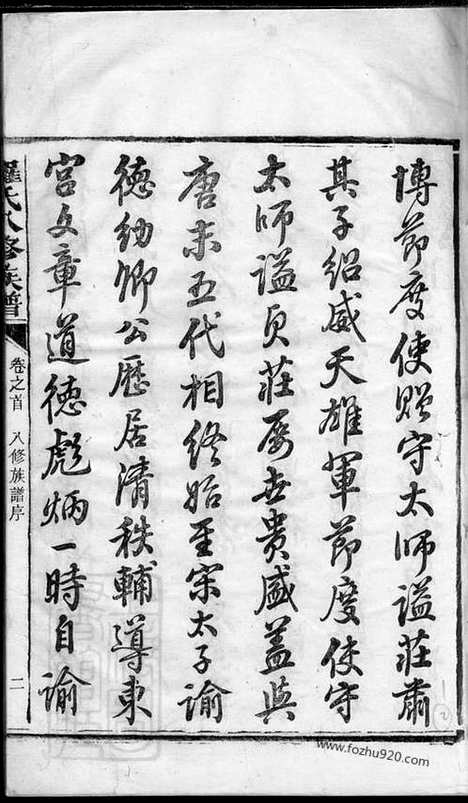 博節度使贈守太师諡莊肅
其子紹威天雄軍節度使守
太师諡貞莊屡世貴盛盖與
唐末五代相終始至宋太子諭
德幼卿公歷居清秩輔導東
宫文章道德彪炳一時自諭
羅氏八修族譜
卷之首 八修族譜序
二
www.fozhu920.com